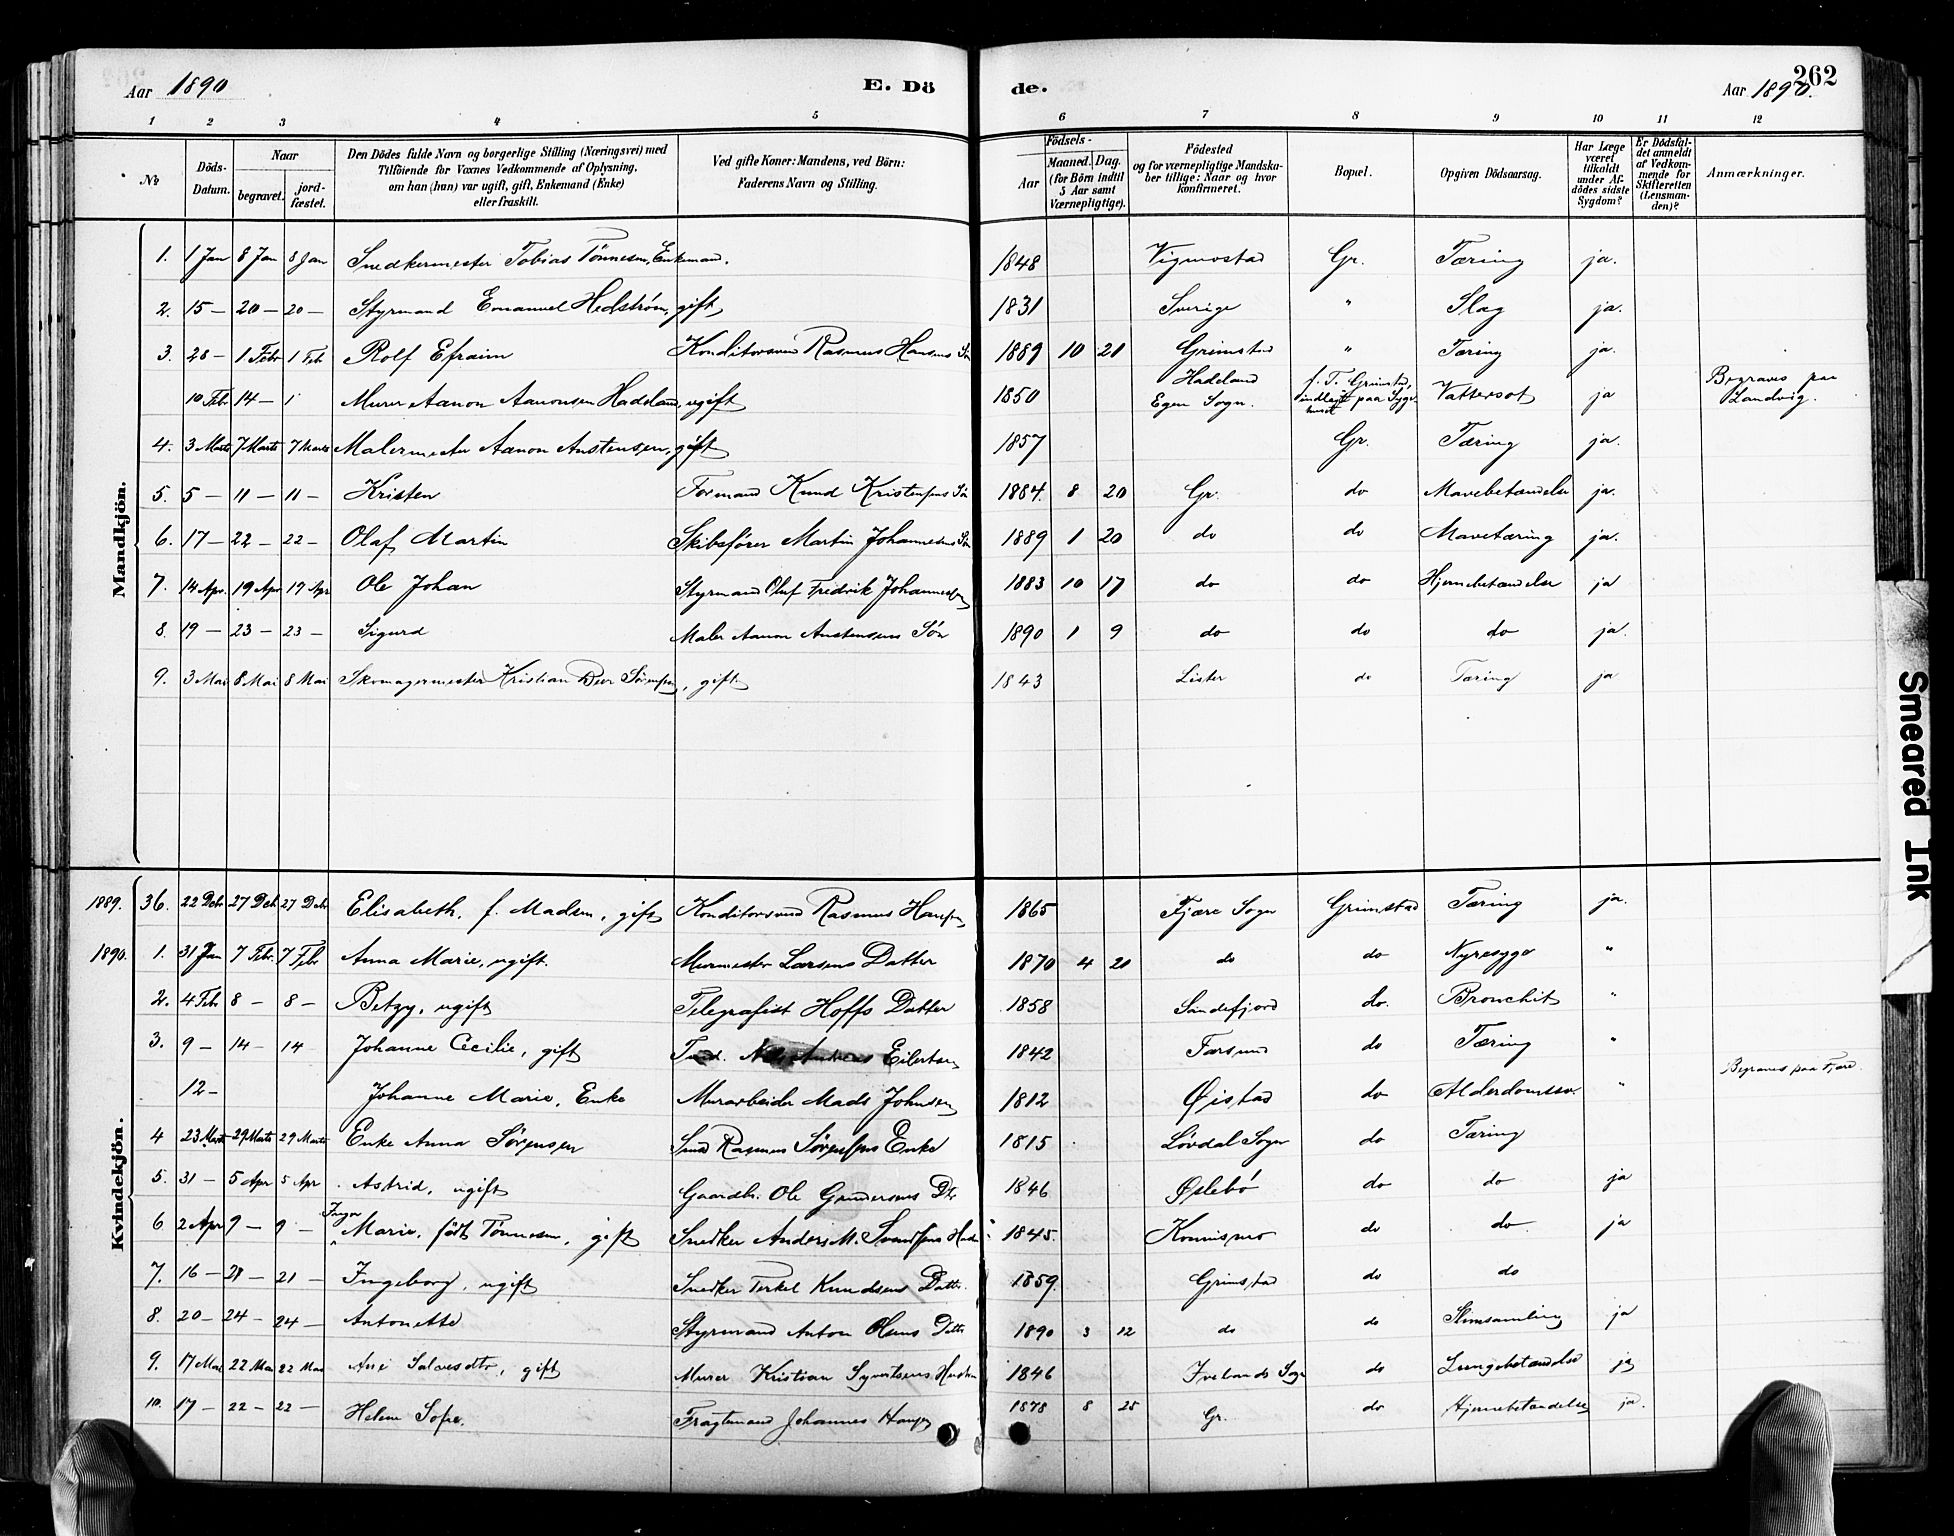 Aar 1890 E. Dö de. Aar 1890. 262
1 2 3 4 5 6 7 8 9 10 11 12
№ Döds-Datum. Naar begravet. jord-fæstet. Den Dödes fulde Navn og borgerlige Stilling (Næringsvei) med Tilföiende for Voxnes Vedkommende af Oplysning, om han (hun) var ugift, gift, Enkemand (Enke) eller fraskilt. Ved gifte Koner: Mandens, ved Börn: Faderens Navn og Stilling. Födsels- Aar Maaned. Dag. (for Börn indtil 5 Aar samt Værnepligtige). Födested og for værnepligtige Mandskaber tillige: Naar og hvor konfirmeret. Bopæl. Opgiven Dödsaarsag. Har Læge været tilkaldt under Afdödes sidste Sygdom? Er Dödsfaldet anmeldt af Vedkommende for Skifteretten (Lensmanden)? Anmærkninger.
Mandkjön.
1. 1 Jan 8 Jan 8 Jan Snedkermester Tobias Tönnesen, Enkemand. 1848 Vigmostad Gr. Tæring ja.
2. 15 — 20 — 20 — Styrmand Emanuel Hedström, gift 1831 Sverige " Slag ja.
3. 28 — 1 Febr 1 Febr Rolf Efraim Konditorsvend Rasmus Hansens Sön 1889 10 21 Grimstad " Tæring ja.
10 Febr 14 — Murer Aanon Aanonsen Hadeland, ugift 1850 Hadeland Egen Sogn. f. T. Grimstad, indlagt paa Sygehuset Vattersot ja Begraves paa Landvig.
4. 3 Marts 7 Marts 7 Marts Malermester Aanon Austensen, gift 1857 Gr. Tæring ja.
5. 5 — 11 — 11 — Kristen Formand Knud Kristensens Sön 1884. 8 20 Gr. do Mavebetændelse ja.
6. 17 — 22 — 22 — Olaf Martin Skibsförer Martin Johannesens Sön 1889 1 20 do do Mavetæring ja.
7. 14 Apr. 19 Apr 19 Apr Ole Johan Styrmand Oluf Fredrik Johannessen 1883 10 17 do do Hjernebetændelse ja
8. 19 — 23 — 23 — Sigurd Maler Aanon Austensens Sön 1890 1 9 do do do ja.
9. 3 Mai 8 Mai 8 Mai Skomagermester Kristian Sörensen, gift 1843 Lister do Tæring ja
Kvindekjön.
1889. 36. 22 Debr 27 Deb 27 Debr Elisabeth, f. Madsen, gift Konditorsvend Rasmus Hansen 1865 Fjære Sogn Grimstad Tæring ja.
1890. 1. 31 Jan 7 Febr. 7 Febr Anna Marie, ugift. Murmester Larsens Datter 1870 4 20 do do Nyresyge "
2. 4 Febr 8 — 8 — Betzy, ugift Telegrafist Hoffs Datter 1858 Sandefjord do. Bronchit "
3. 9 — 14 — 14 Johanne Cecilie, gift Andreas Eilertsen 1842 Farsund do Tæring "
12 — Johanne Marie, Enke Murarbeider Mads Johnsen 1812 Øistad do Alderdomssv. " Begraves paa Fjære.
4 23 Marts 29 Marts 29 Marts Enke Anna Sørensen Rasmus Sørensens Enke 1815 Lövdal Sogn do Tæring
5. 31 — 5 Apr 5 Apr Astrid, ugift Gaardbr. Ole Gundersens Dtr 1846 Øslebö do do ja
6 2 Apr 9 — 9 — Inger Marie, född Tönnesen, gift Snedker Anders M. Svendsens Hustru 1845. Konnismo do do ja
7. 16 — 21 — 21 — Ingeborg, ugift Snedker Terkel Knudsens Datter. 1859. Grimstad do do
8. 20 — 24 — 24 — Antonette Styrmand Anton Olsens Dattr 1890 3 12 do do Slimsamling ja
9. 17 Mai 22 Mai 22 Mai Ane Salvesdtr, gift Murer Kristian Syvertsens Hustru 1846 Ivelands Sogn do Lungebetændelse ja
10. 17 — 22 — 22 — Helene Sofie. Fragtemand Johannes Hansen 1878 8 25 Gr. do Hjernebetændelse ja.
Smeared Ink